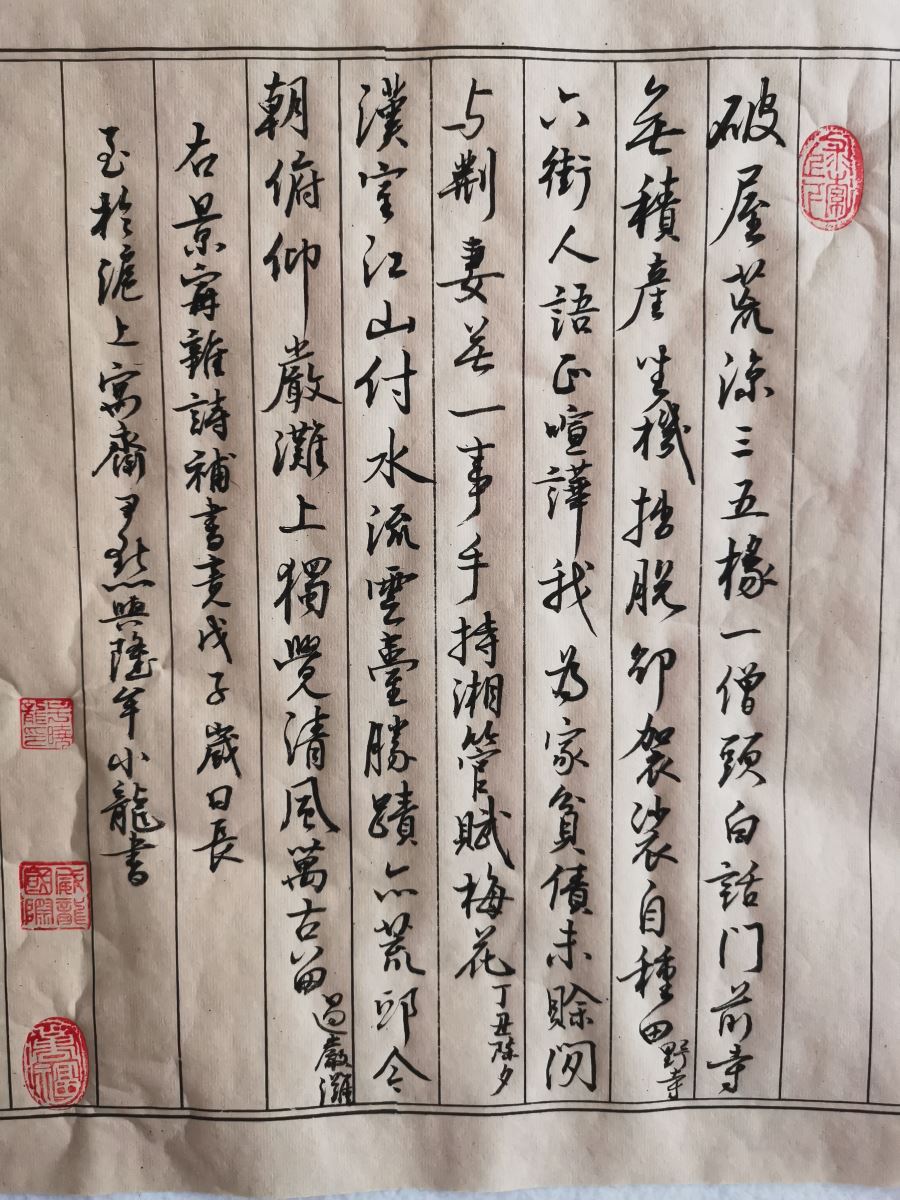 破屋荒涼三五椽一僧頭白話門前寺
無積產生機拙脫卻袈裟自種田野寺
六街人語正喧譁我為家貧債未賒閑
与荆妻無一事手持湘管賦梅花丁丑除夕
漢室江山付水流雲臺勝蹟亦荒邱今
朝俯仰嚴灘上獨覺清風萬古留過嚴灘
右景寧雜詩補書竟戊子歲日長
至於滬上寓齋與隆年小龍書
威龍國際